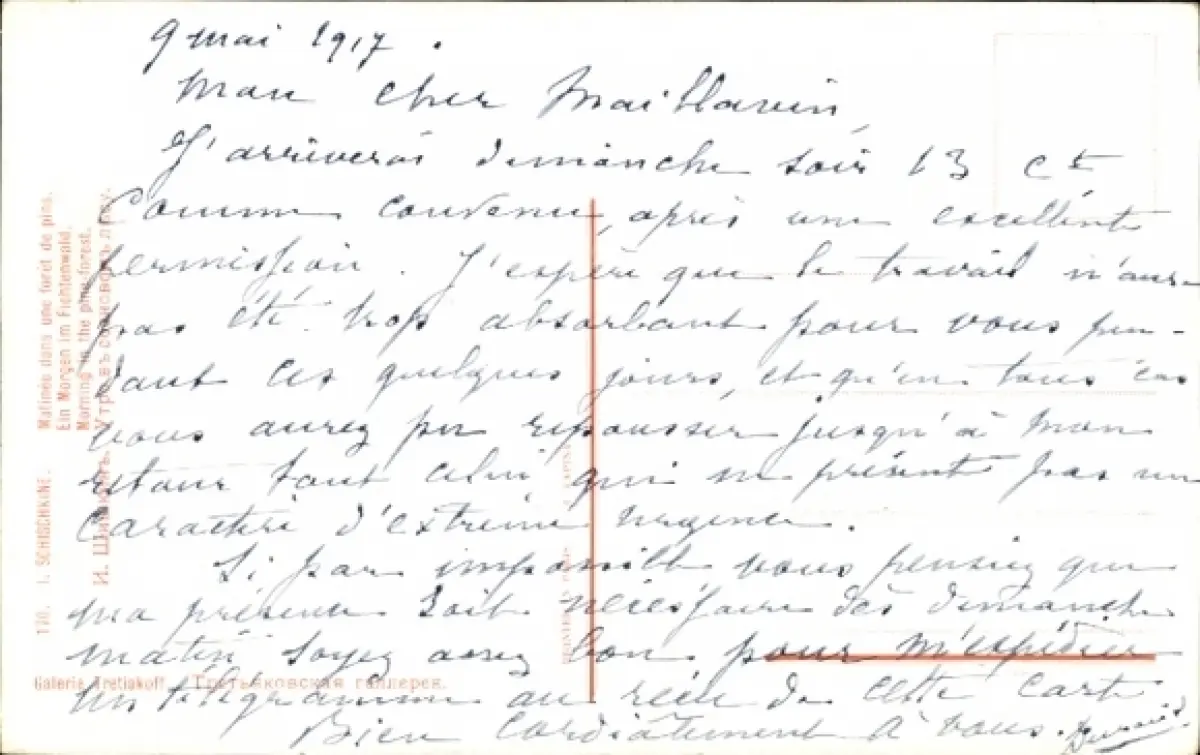 9 mai 1917.
Mon cher Maillavin,
J'arriverai dimanche soir 13 ct
comme convenu, après une excellente
permission. J'espère que le travail n'aura
pas été trop absorbant pour vous pen-
dant ces quelques jours, et qu'en tous cas
vous aurez pu repousser jusqu'à mon
retour tout celui qui ne présente pas un
caractère d'extrême urgence.
Si par impossible vous pensiez que
ma présence soit nécessaire dès dimanche
matin, soyez assez bon pour m'expédier
un télégramme au reçu de cette carte
Bien cordialement à vous.
Matinée dans une forêt de pins.
Ein Morgen im Fichtenwald.
Morning in the pine forest.
И. Шишкинъ. Утро въ сосновомъ лѣсу.
I. SCHISCHKINE.
Galerie Tretiakoff. Третьяковская галлерея.